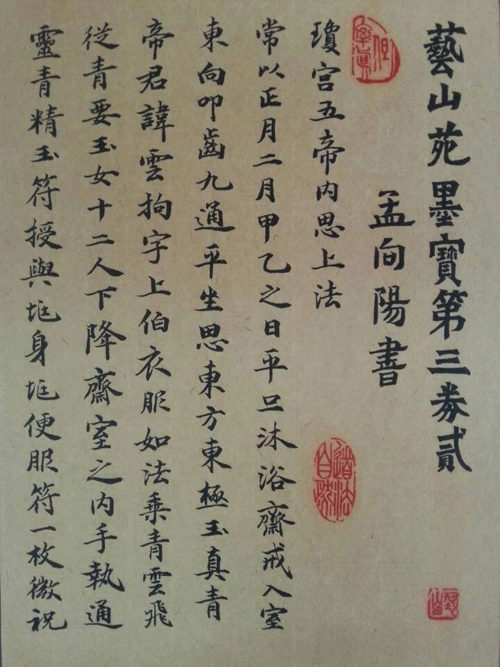 藝山苑墨寶第三券貳
孟向陽書
瓊宫五帝内思上法
常以正月二月甲乙之日平旦沐浴齋戒入室
東向叩齒九通平坐思東方東極玉真青
帝君諱雲拘字上伯衣服如法乘青雲飛
從青要玉女十二人下降齋室之内手執通
靈青精玉符授與㘴身㘴便服符一枚微祝
道法自然